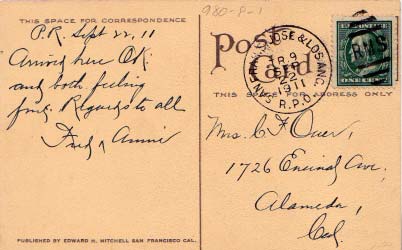 980-P-1
THIS SPACE FOR CORRESPONDENCE
P.R. Sept 22, 11
Arrived here OK.
and both feeling
fine. Regards to all
Fred & Annie
PUBLISHED BY EDWARD H. MITCHELL SAN FRANCISCO CAL.
Post Card
THIS SPACE FOR ADDRESS ONLY
SAN FRAN. SAN JOSE & LOS ANG.
TR. 9
SEP
22
1911
R.P.O.
RMS
ONE CENT
Mrs. C F
1726 Encinal Ave.
Alameda,
Cal.